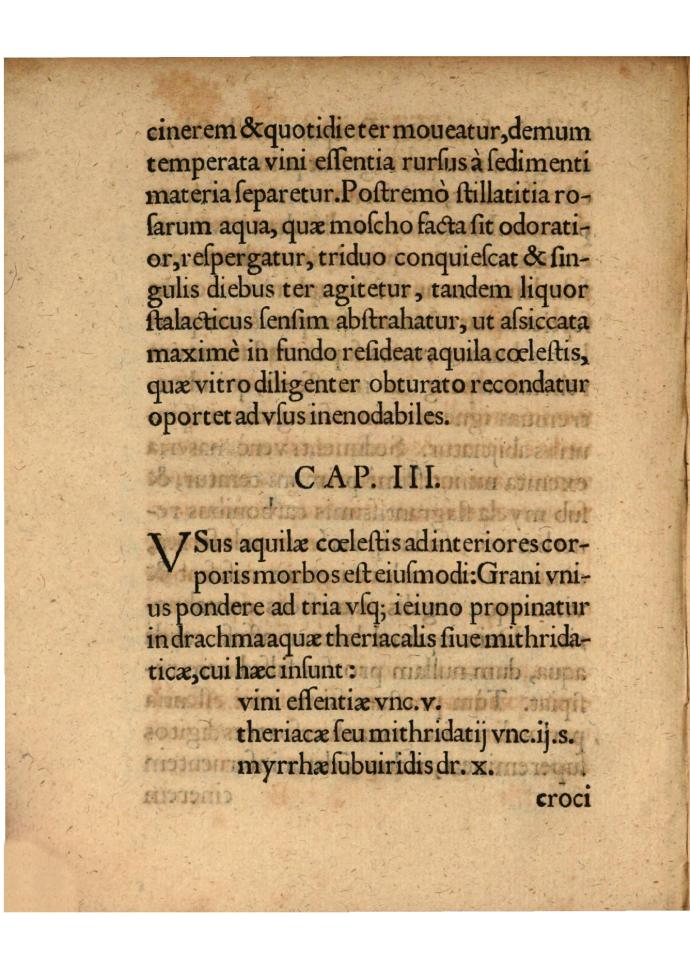 cinerem &quotidie ter moueatur,demum
temperata vini eſſentia rurſus à ſedimenti
materia ſeparetur.Poſtremò ſtillatitia ro-
ſarum aqua, quæ moſcho facta ſit odorati-
or,reſpergatur, triduo conquieſcat & ſin-
gulis diebus ter agitetur, tandem liquor
ſtalacticus ſenſim abſtrahatur, ut aſsiccata
maximè in fundo reſideat aquila cœleſtis,
quæ vitro diligenter obturato recondatur
oportet ad vſus inenodabiles.
CAP. III.
VSus aquilæ cœleſtis ad interiores cor-
poris morbos eſt eiuſmodi:Grani vni-
us pondere ad tria vſq; ieiuno propinatur
in drachma aquæ theriacalis ſiue mithrida-
ticæ,cui hæc inſunt:
vini eſſentiæ vnc.v.
theriacæ ſeu mithridatij vnc.ij.s.
myrrhæ ſubuiridis dr. x.
croci